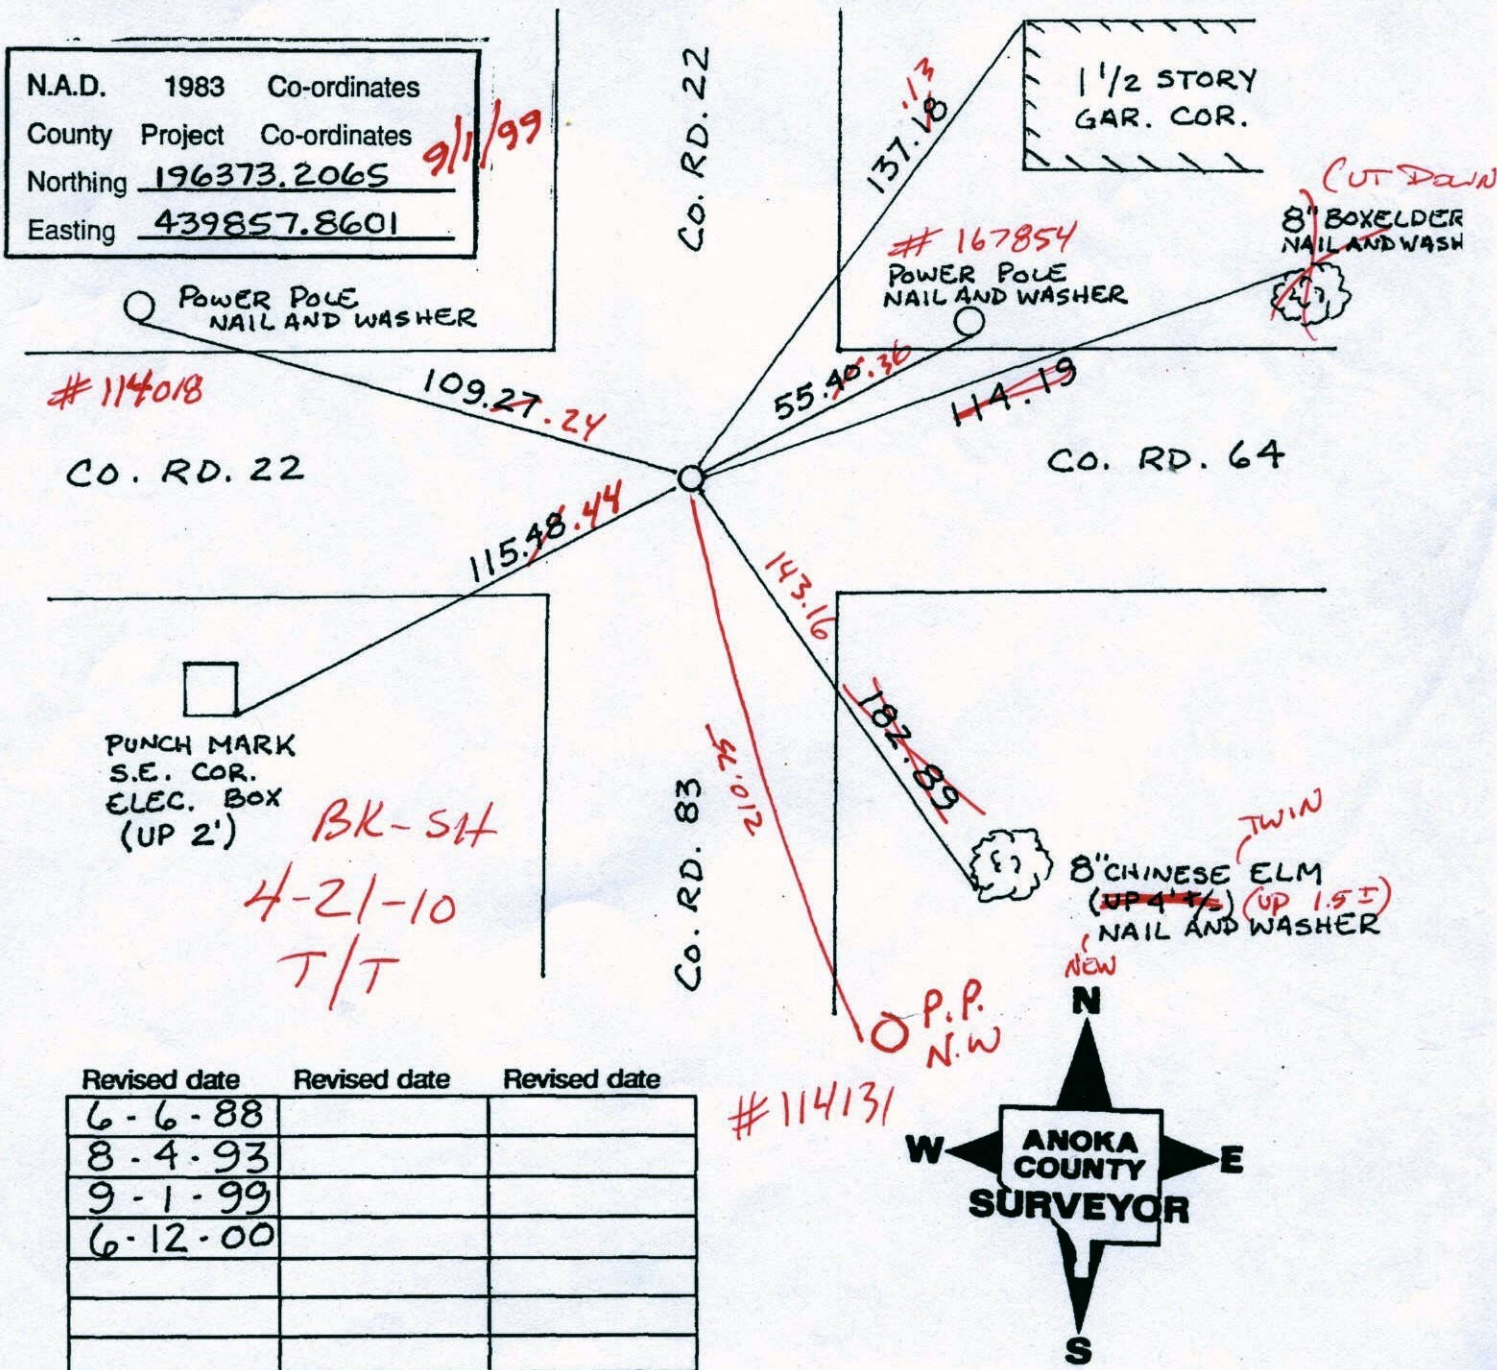 N.A.D. 1983 Co-ordinates
County Project Co-ordinates
9/1/99
Northing 196373.2065
Easting 439857.8601
CO. RD. 22
137.18 .13
1 1/2 STORY
GAR. COR.
CUT DOWN
8" BOXELDER
NAIL AND WASH
# 167854
POWER POLE
NAIL AND WASHER
POWER POLE
NAIL AND WASHER
# 114018
109.27 .24
55.40 .36
114.19
CO. RD. 22
CO. RD. 64
115.48 .44
143.16
182.89
210.75
PUNCH MARK
S.E. COR.
ELEC. BOX
(UP 2')
BK-SH
4-21-10
T/T
CO. RD. 83
TWIN
8" CHINESE ELM
(UP 4' +/-) (UP 1.5 ±)
NAIL AND WASHER
NEW
P.P.
N.W
# 114131
Revised date Revised date Revised date
6-6-88
8-4-93
9-1-99
6-12-00
N
W E
ANOKA
COUNTY
SURVEYOR
S